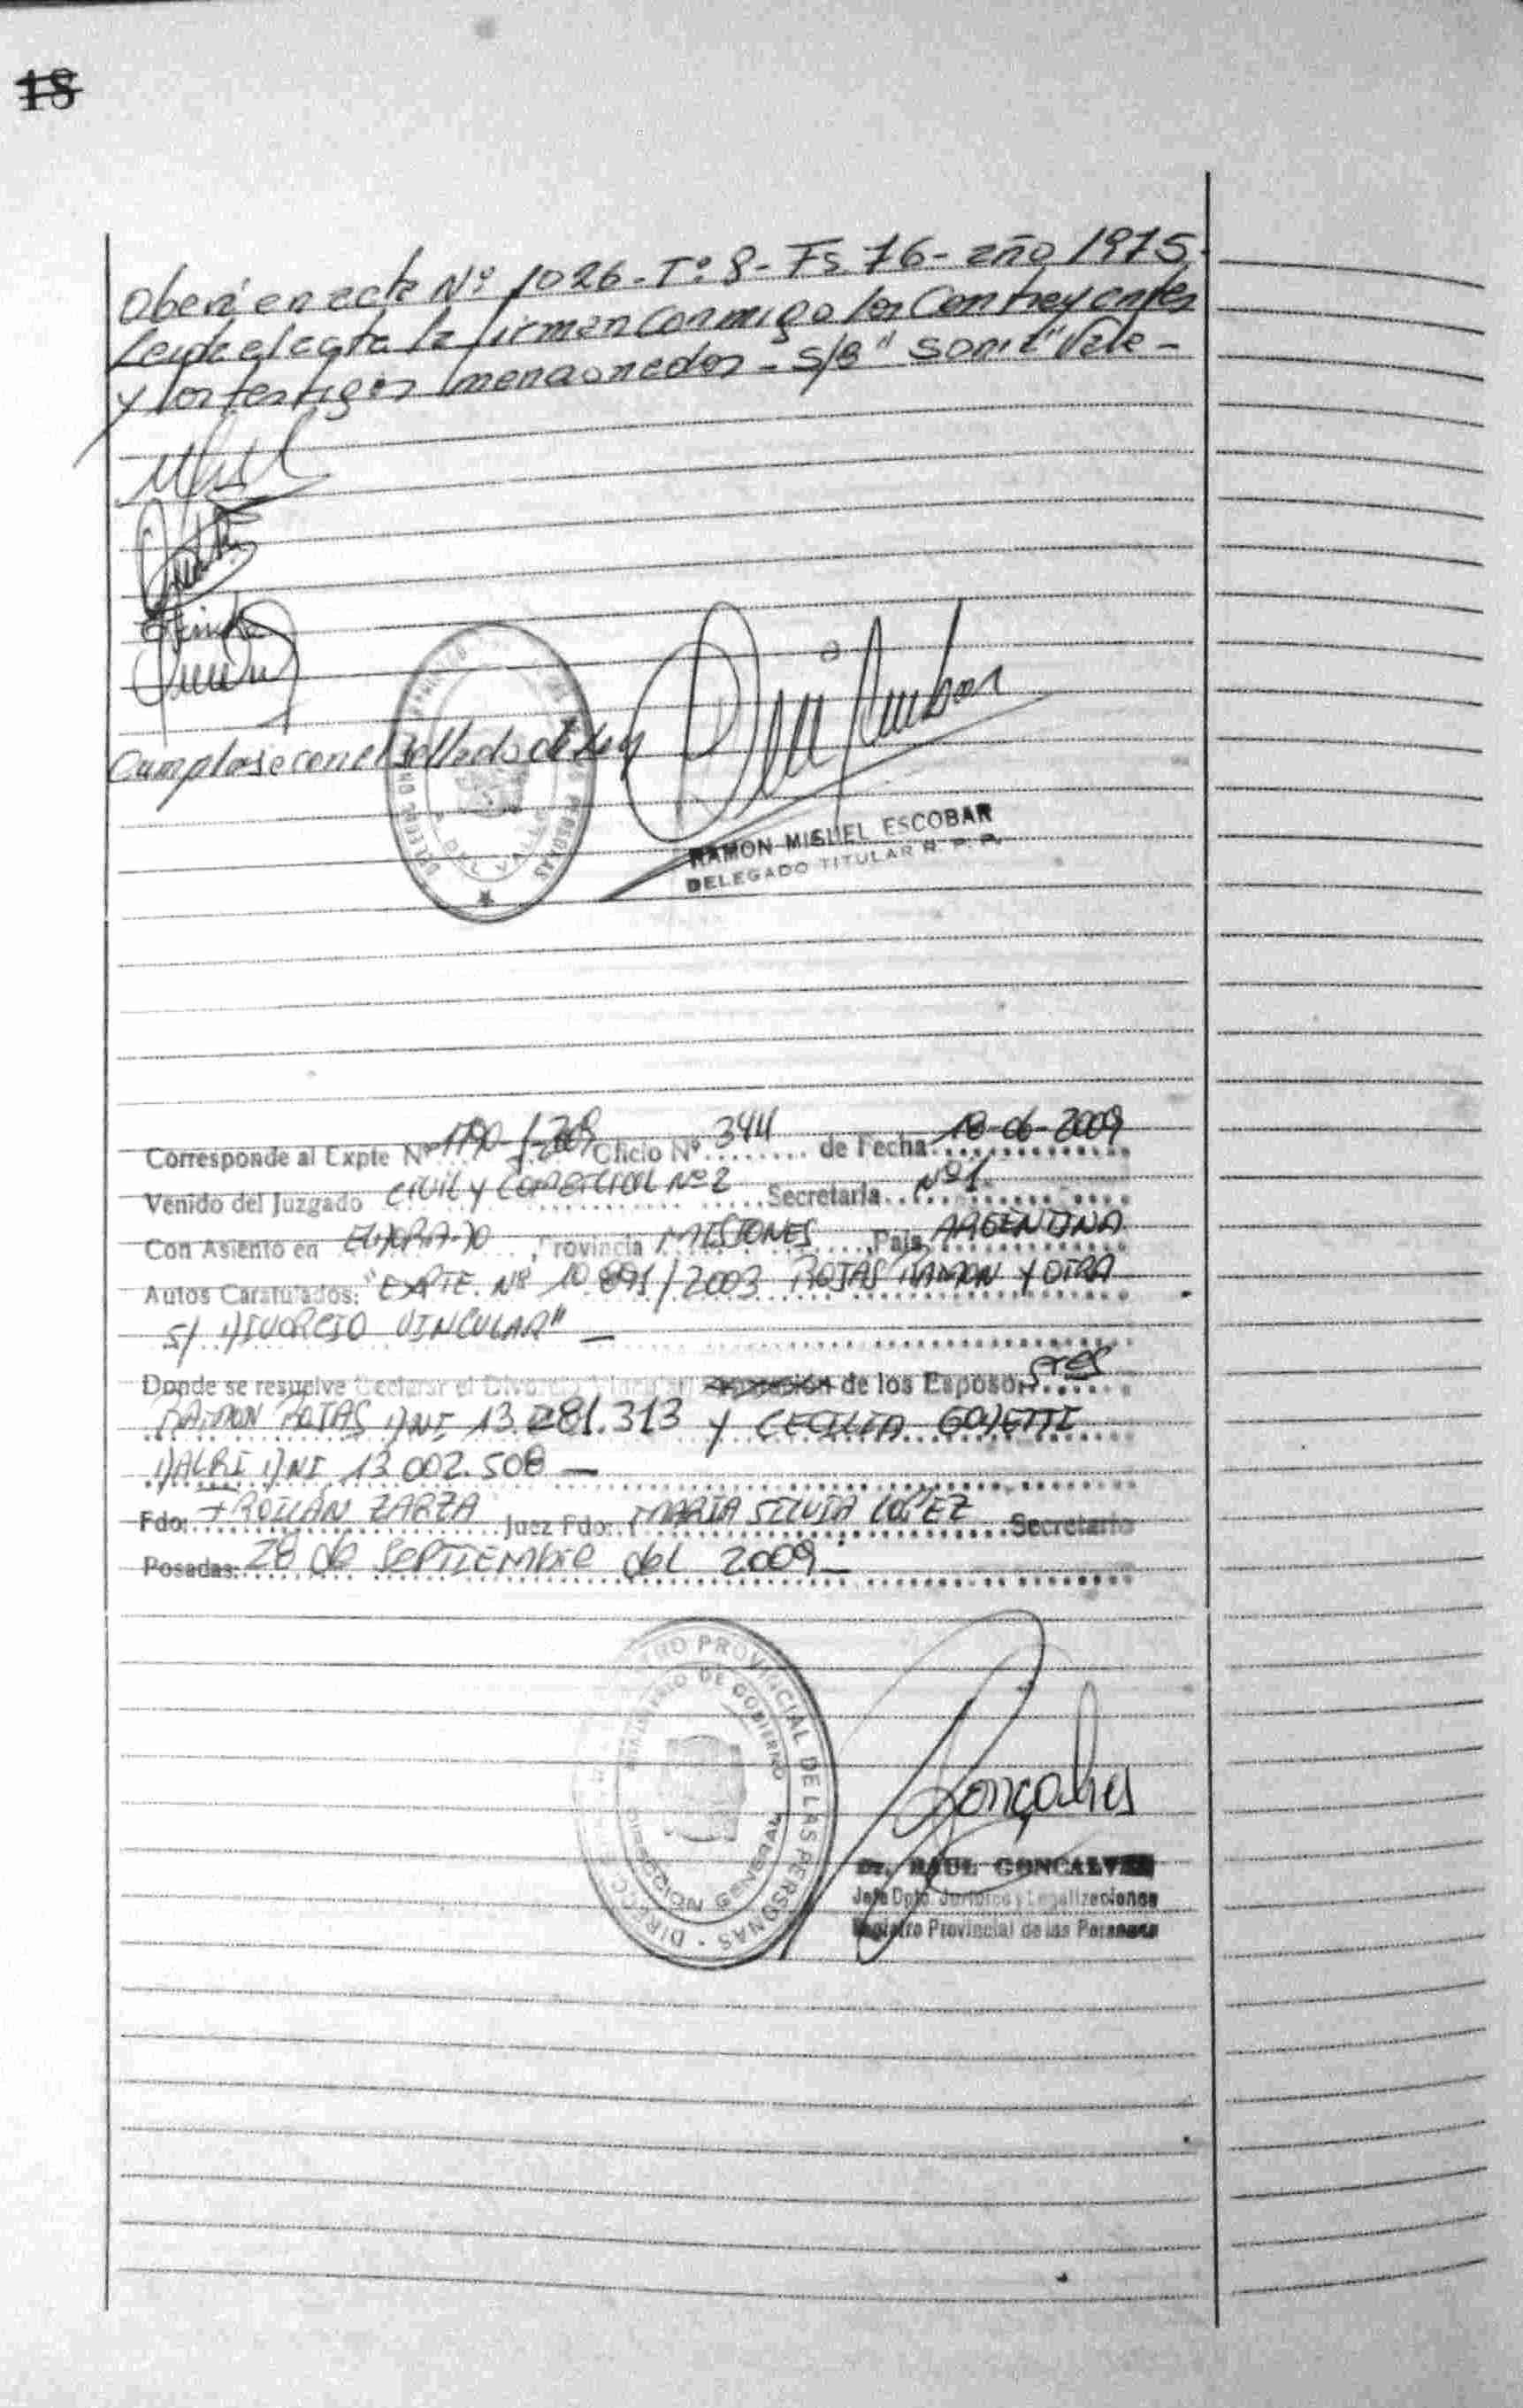 18
Oberá en acta Nº 1026 - Tº: 8 - Fs 76 - año 1975.
Leida el acta la firman conmigo los Contrayentes
y los testigos mencionados - S/B" "Vale -
Cumplase con el sellado de Ley
DEL VALLE
PERSONAS
RAMON MIGUEL ESCOBAR
DELEGADO TITULAR R. P. P.
Corresponde al Expte Nº 1790- Oficio Nº 344 de Fecha 18-06-2009
Venido del Juzgado CIVIL y COMERCIAL Nº 2 Secretaria Nº 1
Con Asiento en ELDORADO, Provincia MISIONES, Pais, ARGENTINA
Autos Caratulados: "EXPTE. Nº 10.891/2003 ROJAS RAMON Y OTRA
S/ DIVORCIO VINCULAR" —
Donde se resuelve Declarar el Divorcio Vincular de los Esposos sres
RAMON ROJAS DNI 13.281.313 y CECILIA
DALRI DNI 13.002.508 —
Fdo: ROILÁN ZARZA Juez Fdo: MARIA SILVIA LOPEZ Secretario
Posadas: 28 de SEPTIEMBRE del 2009 —
REGISTRO PROVINCIAL DE LAS PERSONAS - DIRECC
MINISTERIO DE GOBIERNO
DIRECCION GENERAL
Gonçalves
Dr. RAUL GONCALVES
Jefe Dpto. Juridico y Legalizaciones
Registro Provincial de las Personas